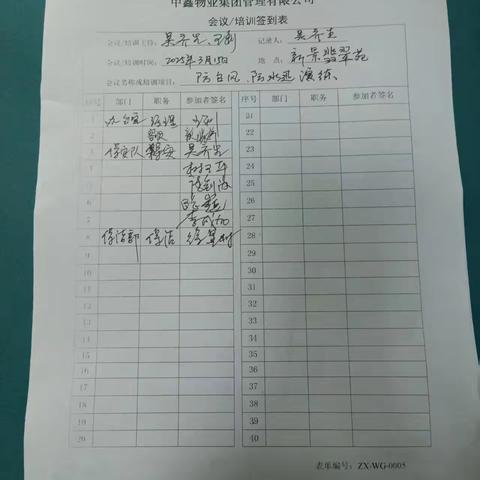 中鑫物业集团管理有限公司
会议/培训签到表
会议/培训主持: 吴齐光、王利 记录人: 吴齐光
会议/培训时间: 2025年3月15日 地点: 新景翡翠苑
会议名称或培训项目: 防台风、防水迅演练、
序号 部门 职务 参加者签名 序号 部门 职务 参加者签名
1 办公室 经理 21
2 22
3 保安队 保安 吴齐光 23
4 24
5 25
6 26
7 27
8 保洁部 保洁 28
9 29
10 30
11 31
12 32
13 33
14 34
15 35
16 36
17 37
18 38
19 39
20 40
表单编号: ZX-WG-0005